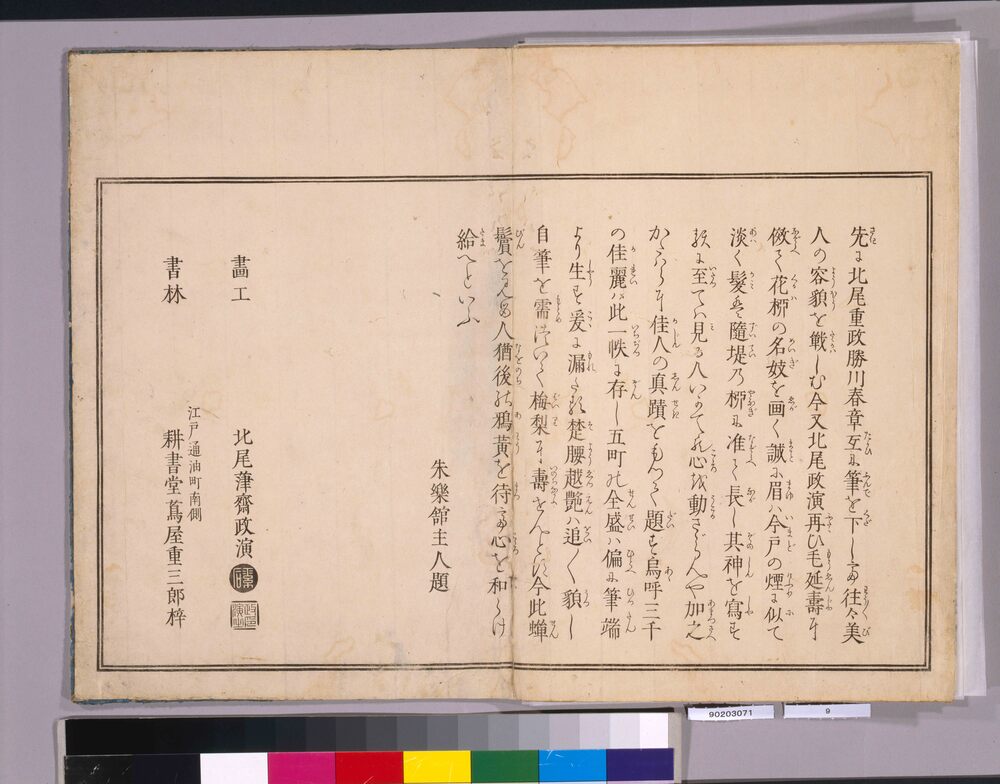 先に北尾重政勝川春章互に筆を下して往々美
人の容貌を戦しむ今又北尾政演再ひ毛延壽に
傚て花柳の名妓を画く誠に眉ハ今戸の煙に似て
淡く髪は隨堤乃柳に准て長し其神を寫す
に至てハ見る人いかてか心を動さゝらんや加之
佳人の真蹟をもつて題す烏呼三千
の佳麗ハ此一帙に存し五町の全盛ハ偏に筆端
より生す爰に漏たる楚腰越艶ハ追て貌し
自筆を需 梅梨に壽 今此蝉
鬢を 人猶後の鴉黄を待て心を和らけ
給へといふ
朱樂舘主人題
畵工 北尾葎齋政演
書林 江戸通油町南側
耕書堂蔦屋重三郎梓
90203071
9